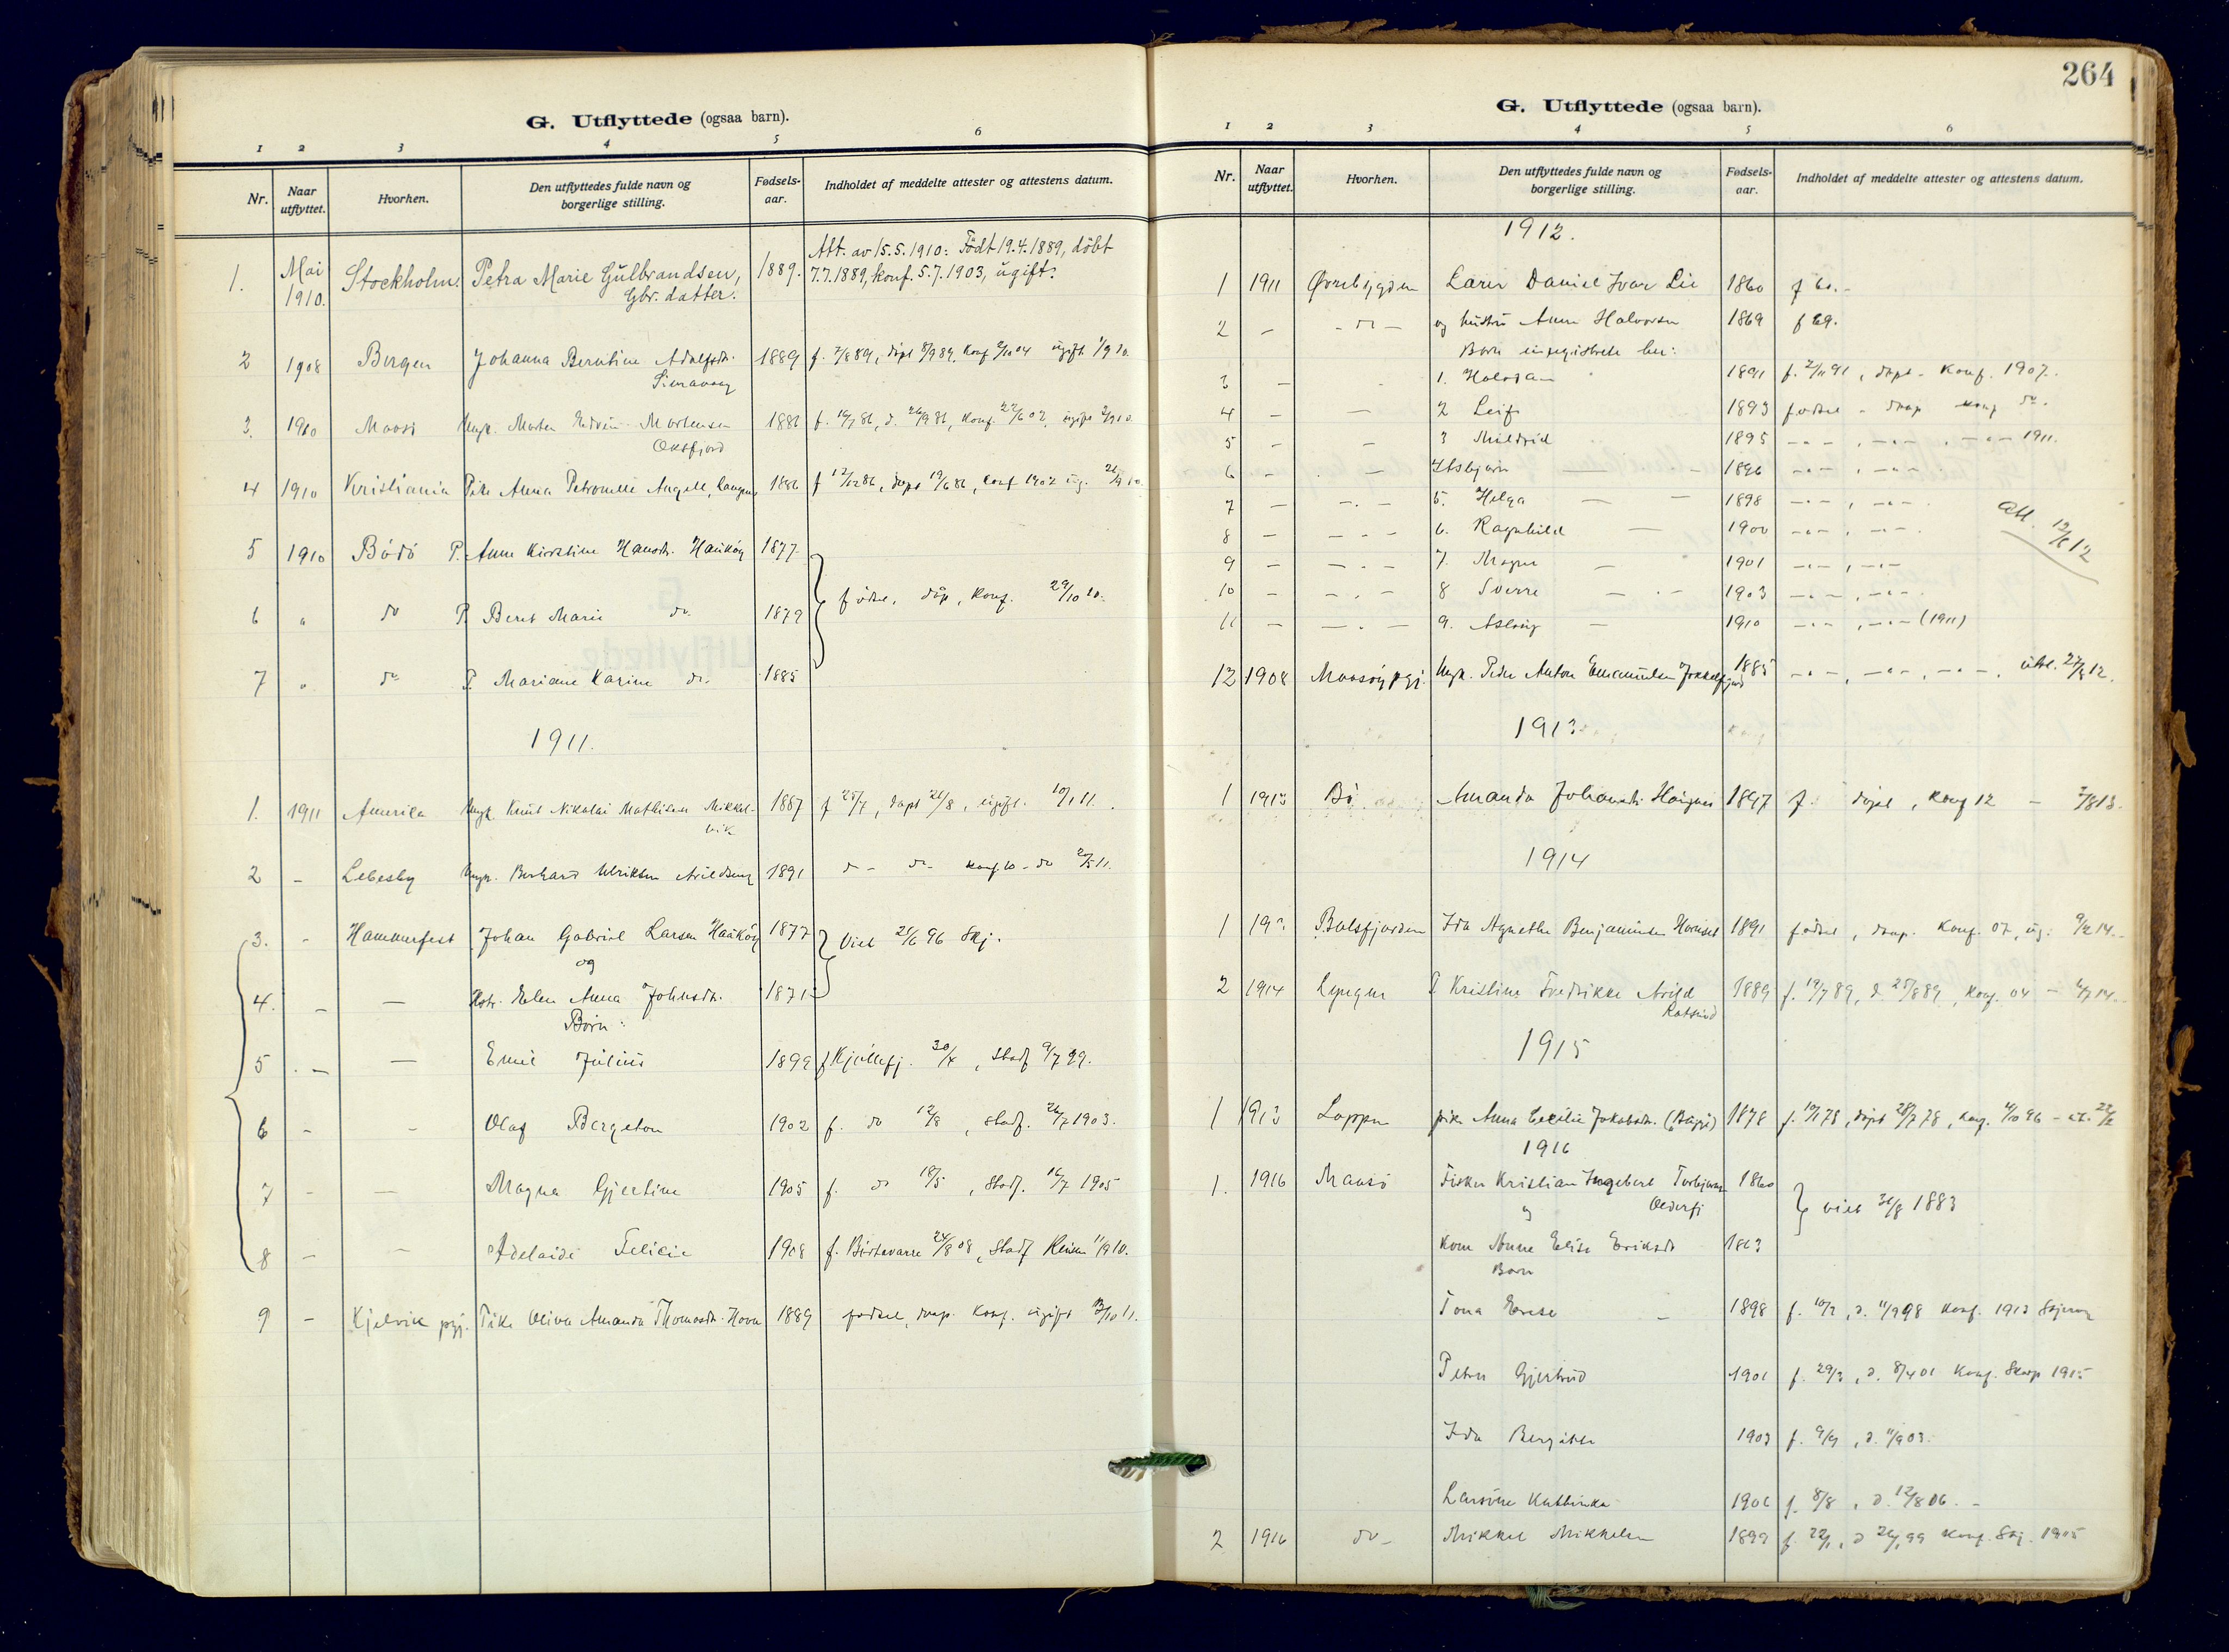 G. Utflyttede (ogsaa barn).
1 2 3 4 5 6
Nr. Naar utflyttet. Hvorhen. Den utflyttedes fulde navn og borgerlige stilling. Fødsels-aar. Indholdet af meddelte attester og attestens datum.
1. Mai 1910. Stockholm. Petra Marie Gulbrandsen, 1889. Att. av 15.5.1910: Født 19.4.1889, döbt
Gbr. datter. 7.7.1889, konf. 5.7.1903, ugift.
2 1908 Bergen Johanna Berntine Adolfsdr. 1889 f. 7/8 89, døpt 8/9 89, konf 2/10 04 ugift 1/9 10.
3. 1910 Maasö Ungk. Morten Edvin Mortensen 1886 f. 16/7 86, d. 26/9 86, konf. 22/6 02, ugift
Oksfjord
4 1910 Kristiania Pike Anna Petronelle Angell, 1886 f 12/12 86, døpt 19/6 86, konf 1902 ug.
5 1910 Bödö P. Anne Kirstine Hansdr. Hauköy 1877
6 " do P. Beret Marie do. 1879 födsel, dåp, konf. 29/10 10.
7 " do P. Mariane Karine do. 1885
1911.
1. 1911 Amerika Ungk. Knut Nikolai Mathisen Mikkel- 1887 f 25/7, døpt 21/8, ugift. 10/1 11.
vik
2 - Lebesby Ungk. Berhard Ulriksen 1891 do- do- konf 10 - do 2/5 11.
3. - Hammerfest Johan Gabriel Larsen Hauköy 1877 Viet 21/6 96 Skj.
og
4. - - Hstr. Elen Anna Johnsdr. 1871
Börn:
5 - - Emil Julius 1899 f Kjöllefj. 30/4, stadf 9/7 99.
6 - - Olaf Bergeton 1902 f. do 12/8, stadf. 26/7 1903.
7 - - Magna Gjertine 1905 f. do 18/5, stadf. 16/7 1905
8 - - Adelaide Felicie 1908 f. Birtavarre 24/8 08, stadf 11/9 10.
9 - Kjelvik pgj. Pike Oliva Amanda Thomasdr. 1889 födsel, daap. konf. ugift 13/10 11.
264
G. Utflyttede (ogsaa barn).
1 2 3 4 5 6
Nr. Naar utflyttet. Hvorhen. Den utflyttedes fulde navn og borgerlige stilling. Fødsels-aar. Indholdet af meddelte attester og attestens datum.
1912.
1 1911 Øvrebygden Lærer Daniel Ivar Lie 1860 f 60.-
2 - - do - og hustru Anna Halvorsen 1869 f 69.
Børn inregistrete her:
3 - - 1. Halvdan 1891 f. 2/11 91, døpt - konf. 1907.
4 - - 2 Leif 1893 fødsel - daap konf do.
5 - - 3 Mildrid 1895 - " -, - " -, - " - 1911.
6 - - 4 Asbjørn - 1896 - " -, - " -
7 - - 5. Helga - 1898 - " -, - " -
8 - - 6. Ragnhild - 1900 - " -, - " - Att. 12/6 12
9 - - 7. Magne - 1901 - " -, - " -
10 - - 8 Sverre - 1903 - " -, - " -
11 - - 9. Aslaug - 1910 - " -, - " - (1911)
12 1908 Maasöy pgj. Ungk. Peder Anton Emanuelsen Jøkelfjord 1885 - " -, - " -, - " -, utst. 27/8 12.
1913
1 1913 Bö Amanda Johansdr. 1897 f. døpt, konf 12 - 7/8 13.
1914
1 Balsfjorden Ida Agnethe Benjaminsen 1891 födsel, daap. konf. 07, ug. 9/2 14.
2 1914 Lyngen P Kristine Fredrikke Arild 1889 f. 19/7 89, d. 25/8 89, konf. 04 -
Rotsund
1915
1 1913 Loppen pike Anna Cecilie Jakobsdr. 1878 f. 10/1 78, døpt 28/7 78, konf.
1916
1. 1916 Maasö Fisker Kristian Ingebert 1860
og Olderfj viet 1883
kone Anne Elise Eriksdr 1863
Barn
Tona 1898 f. 10/7, d. 11/9 98 konf. 1913
Petra Gjertrud 1901 f. 29/3, d. 8/4 01 konf. 1915
Ida Bergitte 1903 f. 9/9, d. 11/9 03.
Larsine Kathinka 1906 f. 8/8, d. 12/8 06. -
2 1916 do - Mikkel Mikkelsen 1899 f. 22/1, d 26/1 99 konf. Skj. 1915